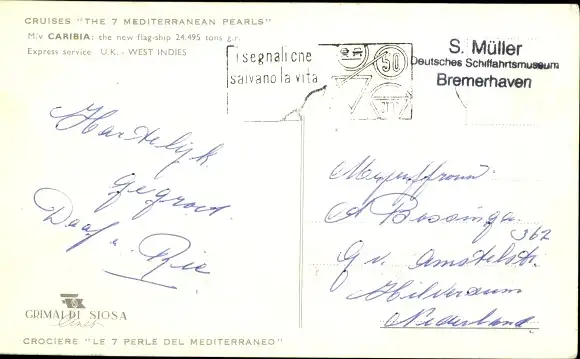 CRUISES "THE 7 MEDITERRANEAN PEARLS"
M/v CARIBIA: the new flag-ship 24.495 tons g.r.
Express service U.K. - WEST INDIES
i segnali che
salvano la vita
50
S. Müller
Deutsches Schiffahrtsmuseum
Bremerhaven
Hartelijk
gegroet.
Daaf u. Rie
Mejuffrouw
A Bossinga
362
G v. Amstelstr.
Hilversum
Nederland.
GRIMALDI SIOSA
Lines
CROCIERE "LE 7 PERLE DEL MEDITERRANEO"